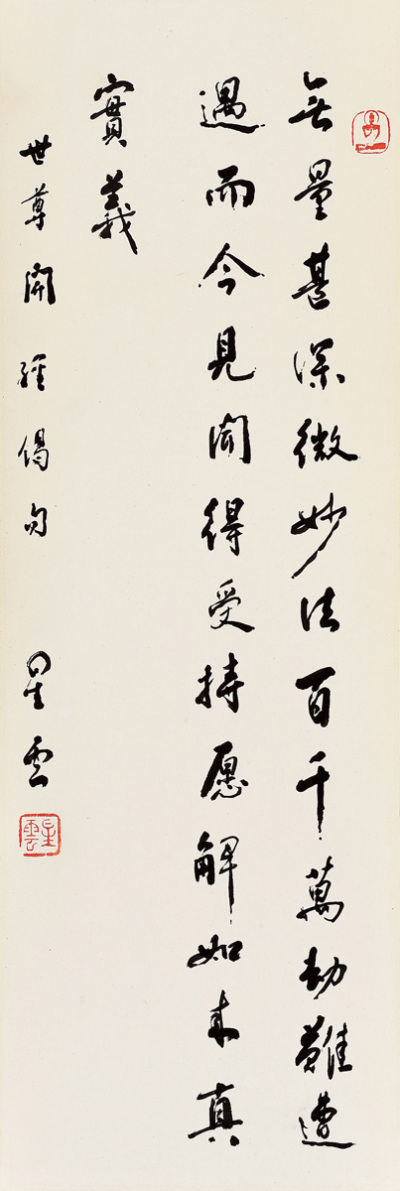 無量甚深微妙法百千萬劫難遭
遇而今見聞得受持愿解如來真
實義
世尊開經偈句 星雲
星雲